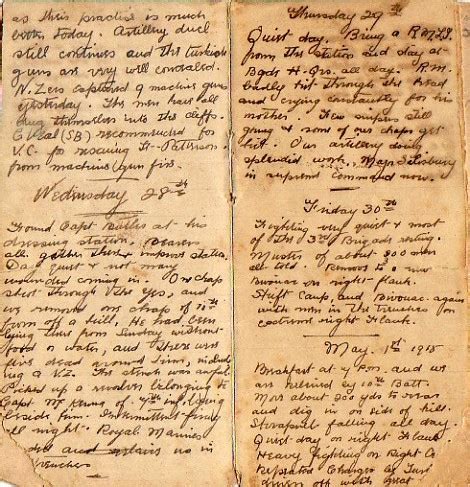 as their practice is much
better today. Artillery duel
still continues and the turkish
guns are very well controlled.
N. Zers captured 9 machine guns
yesterday. The men have all
dug themselves into the cliffs.
(SB) recommended for
V.C. for rescuing Lt. Patterson
from machine gun fire.
Wednesday 28th
Found Capt Butler at his
dressing station, Bearers
all gather there & improve station.
Day quiet & not many
wounded coming in. One chap
shot through the eyes, and
we remove one chap of 11th
from off a hill. He had been
lying there from Sunday without
food or water, and there were
five dead around him, including
a NZ. The stench was awful
Picked up a revolver belonging to
Capt of 4th inf lying
beside him. Intermittent firing
all night. Royal Marines
and relieve us in
trenches
Thursday 29th
Quiet day. Bring a R.M.L.I.
from the station and stay at
Bgde H.Qrs. all day. R.M.
badly hit through the head
and crying constantly for his
mother. Few snipers still
going & some of our chaps get
hit. Our artillery doing
splendid work. Major Salisbury
in supreme Command now.
Friday 30th
Fighting very quiet & most
of the 3rd Brigade resting.
Muster of about 800 men
all told. Remove to a new
Bivouac on right flank.
Shift Camp, and Bivouac again
with men in the trenches on
extreme right Flank.
May. 1st 1915
Breakfast at 4 pm. and we
are relieved by 10th Batt.
Move about 200 yds to rear
and dig in on side of hill
Shrapnel falling all day.
Quiet day on right Flank
Heavy Fighting on Right Co
Repeated Charges by Turks
driven off with great